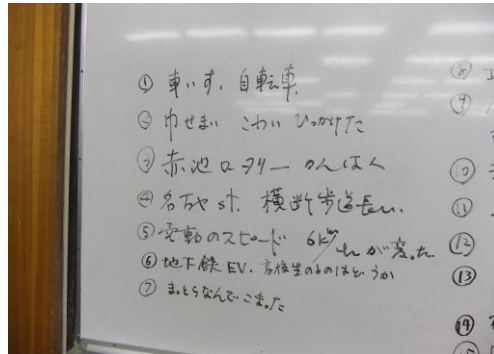 ① 車いす、自転車
② 巾せまい こわい ひっかけた
③ 赤池ロータリー かんぱく
④ 名古屋st. 横断歩道長い、
⑤ 電動のスピード 6km/h が変った
⑥ 地下鉄EV. 高校生のるのはどうか
⑦ まっとらなんでこまった
⑧
⑨
⑩
⑪
⑫
⑬
⑭